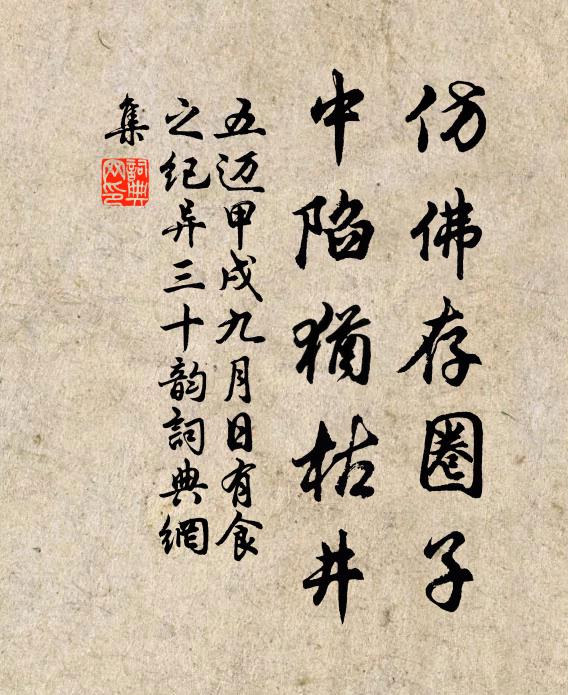 仿佛存圈子
中陷猶枯井
五迈甲戌九月日有食
之纪异三十韵詞典網
集
詞典網印